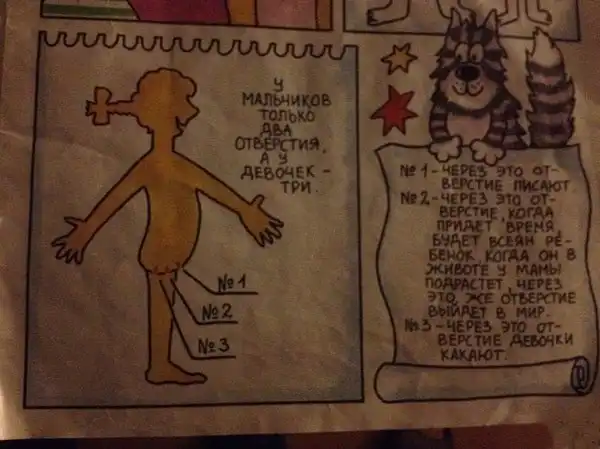 У
МАЛЬЧИКОВ
ТОЛЬКО
ДВА
ОТВЕРСТИЯ,
А У
ДЕВОЧЕК –
ТРИ.
№1
№2
№3
№1 – ЧЕРЕЗ ЭТО ОТ-
ВЕРСТИЕ ПИСАЮТ.
№2 – ЧЕРЕЗ ЭТО ОТ-
ВЕРСТИЕ, КОГДА
ПРИДЕТ ВРЕМЯ,
БУДЕТ ВСЕЯН РЕ-
БЕНОК, КОГДА ОН В
ЖИВОТЕ У МАМЫ
ПОДРАСТЕТ, ЧЕРЕЗ
ЭТО ЖЕ ОТВЕРСТИЕ
ВЫЙДЕТ В МИР.
№3 – ЧЕРЕЗ ЭТО ОТ-
ВЕРСТИЕ ДЕВОЧКИ
КАКАЮТ.